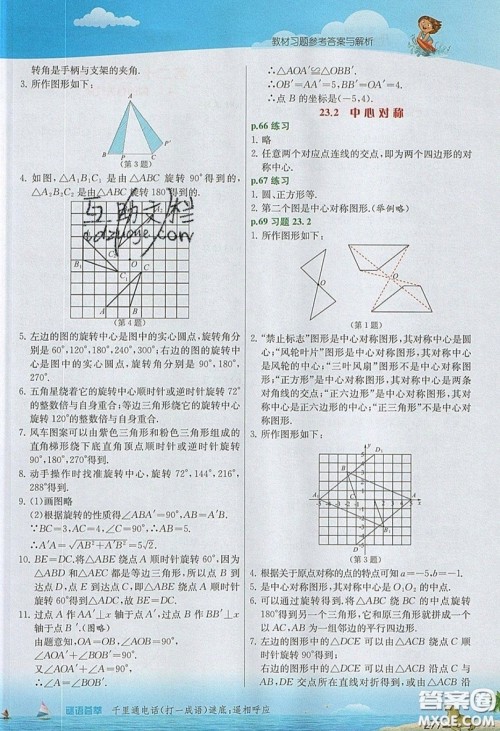 教材习题参考答案与解析
转角是手柄与支架的夹角.
3. 所作图形如下:
A
P'
B P C
(第3题)
4. 如图,△A₁B₁C₁ 是由△ABC 旋转 90°得到的,
△A₂B₂C₂ 是由△ABC 旋转180°得到的.
互助文栏
(第4题)
5. 左边的图的旋转中心是图中的实心圆点,旋转角分
别是 60°,120°,180°,240°,300°;右边的图的旋转
中心是图中的实心圆点,旋转角分别是 90°,180°,
270°.
6. 五角星绕着它的旋转中心顺时针或逆时针旋转 72°
的整数倍与自身重合;等边三角形绕着它的旋转中
心旋转 120°的整数倍与自身重合.
7. 风车图案可以由紫色三角形和粉色三角形组成的
直角梯形绕下底直角顶点顺时针或逆时针旋转
90°,180°,270°得到.
8. 动手操作时找准旋转中心,旋转 72°,144°,216°,
288°得到.
9. (1)画图略
(2)根据旋转的性质得∠ABA′=90°,AB=A′B.
∵BC=3,AC=4,∠C=90°,∴AB=5.
∴A′A=√AB²+A′B²=5√2.
10. BE=DC,将△ABE 绕点 A 顺时针旋转 60°,因为
△ABD 和△AEC 都是等边三角形,所以点 B 到
达点 D,点 E 到达点 C,即△ABE 旋转后到达
△ADC,故 BE=DC.
11. 过点 A 作 AA′⊥x 轴于点 A′,过点 B 作 BB′⊥x
轴于点 B′.(图略)
由题意知,OA=OB,∠AOB=90°,
∴∠A′OA+∠B′OB=90°.
又∠A′OA+∠A=90°,
∴∠A=∠B′OB.
又∠AA′O=∠OB′B=90°,
∴△AOA′≌△OBB′.
∴OB′=AA′=5,BB′=OA′=4.
∴点 B 的坐标是(-5,4).
23.2 中心对称
p.66 练习
1. 略
2. 任意两个对应点连线的交点,即为两个四边形的对
称中心.
p.67 练习
1. 圆、正方形等.
2. 第二个图是中心对称图形.(举例略)
p.69 习题 23.2
1. 所作图形如下:
O
O
(第1题)
2. “禁止标志”图形是中心对称图形,其对称中心是圆
心;“风轮叶片”图形是中心对称图形,其对称中心
是风轮的中心;“三叶风扇”图形不是中心对称图
形;“正方形”是中心对称图形,其对称中心是两条
对角线的交点;“正六边形”是中心对称图形,其对
称中心是正六边形的中心;“五角形”不是中心对称
图形.
3. 所作图形如下:
(第3题)
4. 根据关于原点对称的点的特点可知 a=-5,b=-1.
5. 是中心对称图形,其对称中心是 O₁O₂ 的中点.
6. 可以,将得到的三角形绕 BC 的中点旋转 180°
后,这个三角形和原来三角形就形成一个
以 AC,AB 为一组邻边的平行四边形.
7. 左边的图形中的△DCE 可以由△ACB 绕点 C 顺
时针旋转 90°得到;
右边的图形中的△DCE 可以由△ACB 绕点 C 顺
谜语荟萃 千里通电话(打一成语)谜底:遥相呼应
答案圈
MXQE.COM